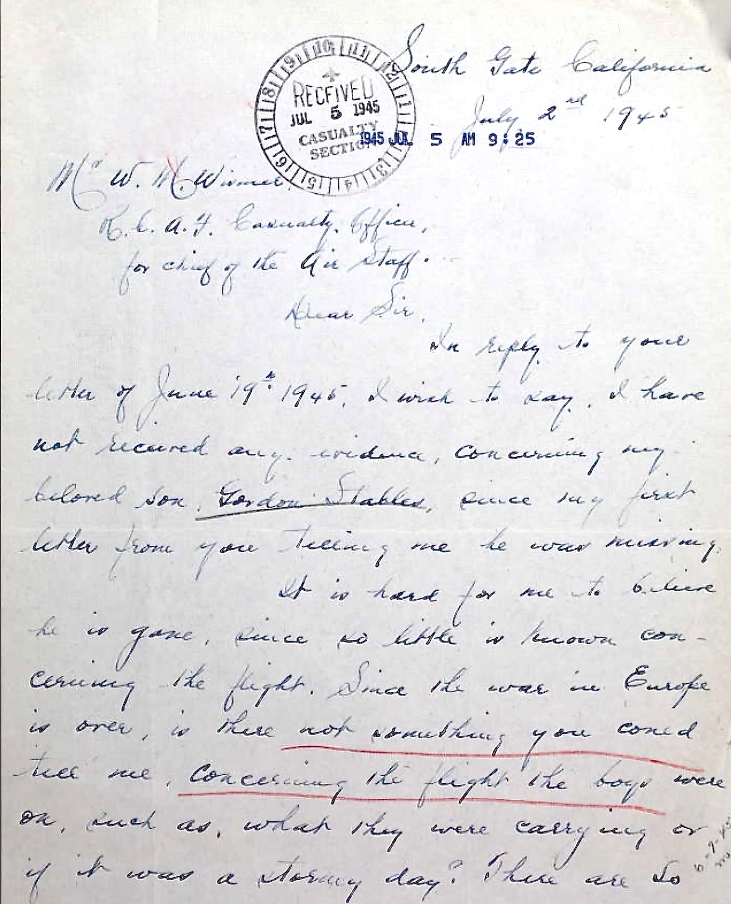 South Gate California
July 2nd 1945
RECEIVED
JUL 5 1945
CASUALTY
SECTION
1945 JUL 5 AM 9:25
Mr W. M.
R.C.A.F. Casualty Officer,
for chief of the Air Staff.
Dear Sir,
In reply to your
letter of June 19th 1945, I wish to say, I have
not received any evidence, concerning my
beloved son, Gordon Stables, since my first
letter from you telling me he was missing.
It is hard for me to believe
he is gone, since so little is known con-
cerning the flight. Since the war in Europe
is over, is there not something you could
tell me, concerning the flight the boys were
on, such as, what they were carrying or
if it was a stormy day? There are so